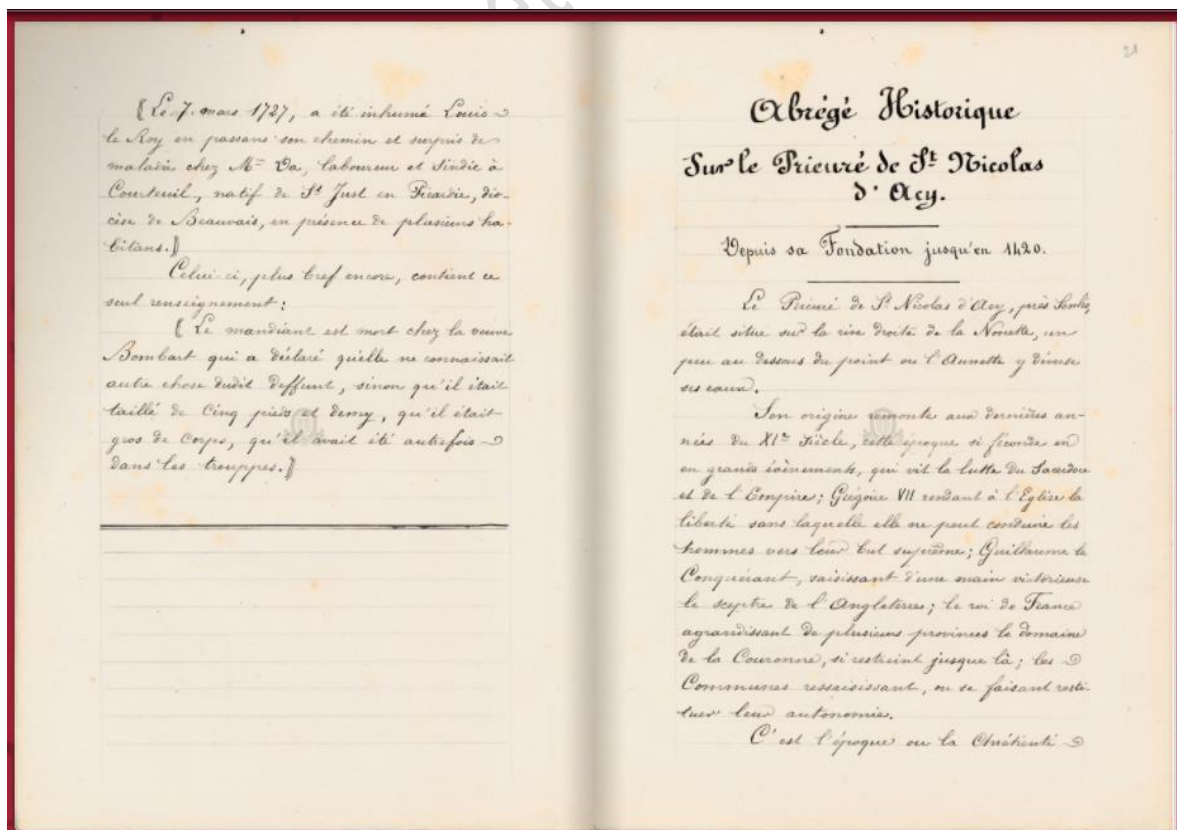 (Le 7. mars 1727, a été inhumé Louis
le Roy en passans son chemin et surpris de
maladie chez Mre Va, laboureur et Sindic à
Courteuil, natif de St Just en Picardie, dio-
cèse de Beauvais, en présence de plusieurs ha-
bitans.)
Celui-ci, plus bref encore, contient ce
seul renseignement:
(Le mandiant est mort chez la veuve
Bombart qui a déclaré quelle ne connaissait
autre chose dudit deffunt, sinon qu'il était
taillé de Cinq pieds et demy, qu'il était
gros de Corps, qu'il avait été autrefois
dans les trouppes.)
21
Abrégé Historique
Sur le Prieuré de St Nicolas
d'Acy.
Depuis sa Fondation jusqu'en 1420.
Le Prieuré de St Nicolas d'Acy, près Senlis,
était situé sur la rive droite de la Nonette, un
peu au dessous du point ou l'Aunette y déverse
ses eaux.
Son origine remonte aux dernières an-
nées du XIe Siècle, cette époque si féconde en
en grands évènements, qui vit la lutte du Sacerdoce
et de l'Empire; Grégoire VII rendant à l'Eglise la
liberté sans laquelle elle ne peut conduire les
hommes vers leur but suprême; Guillaume le
Conquérant, saisissant d'une main victorieuse
le sceptre de l'Angleterre; le roi de France
agrandissant de plusieurs provinces le domaine
de la Couronne, si restreint jusque là; les
Communes ressaisissant, ou se faisant resti-
tuer leur autonomie.
C'est l'époque ou la Chrétienté